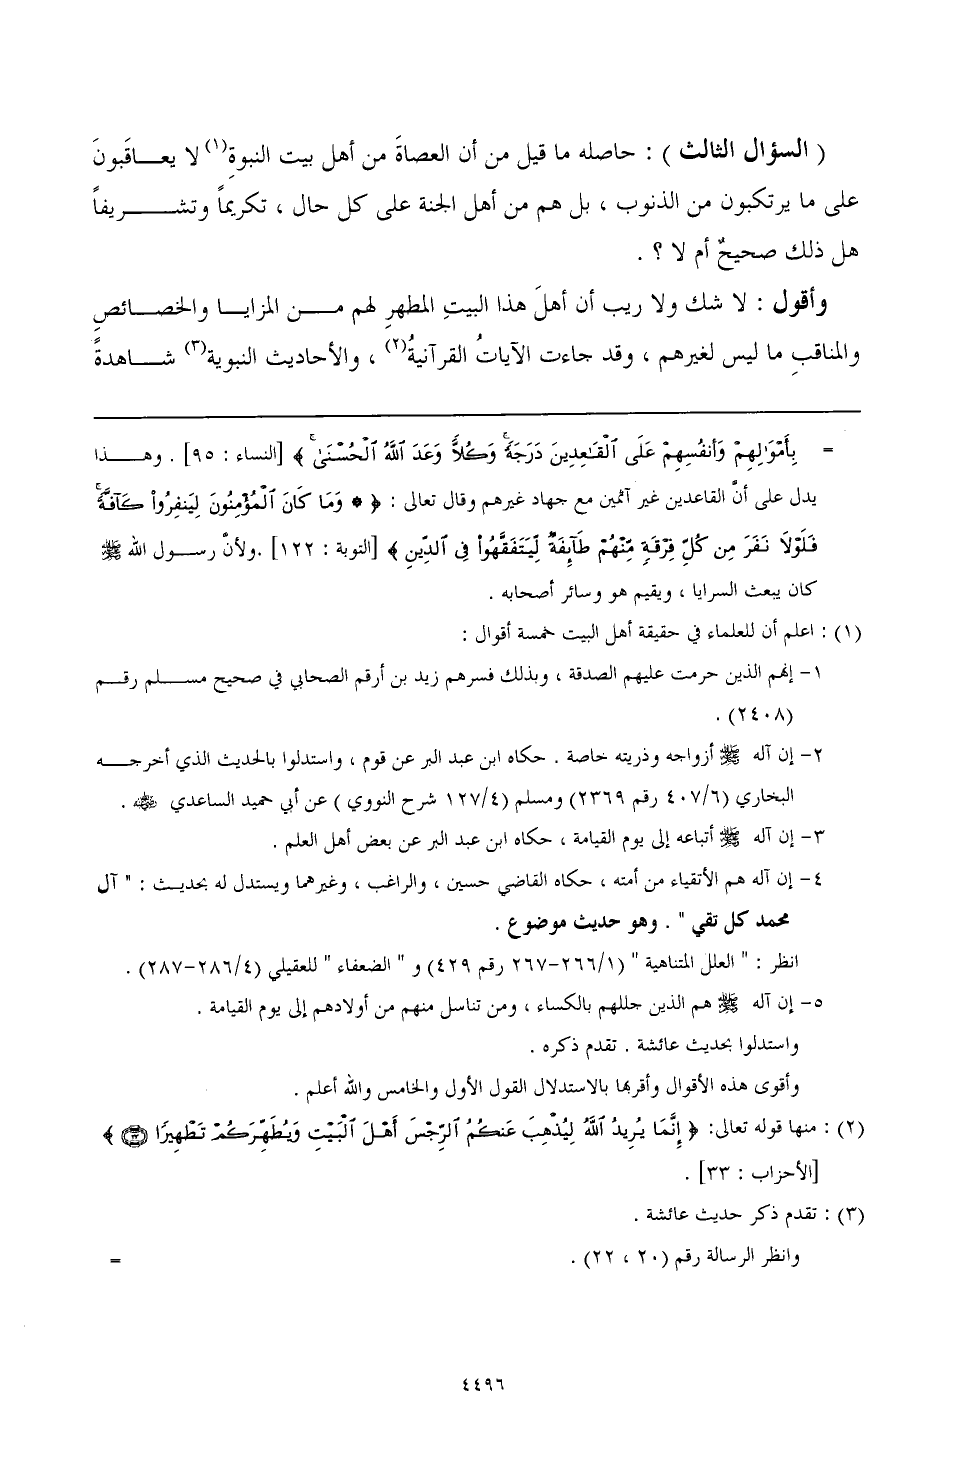 ( السؤال الثالث ) : حاصله ما قيل من أن العصاةَ من أهل بيت النبوةِ(١) لا يعـاقَبونَ
على ما يرتكبون من الذنوب ، بل هم من أهل الجنة على كل حال ، تكريماً وتشـريفاً
هل ذلك صحيحٌ أم لا ؟ .
وأقول : لا شك ولا ريب أن أهلَ هذا البيتِ المطهرِ لهم مـن المزايـا والخصـائصِ
والمناقبِ ما ليس لغيرهم ، وقد جاءت الآياتُ القرآنيةُ(٢) ، والأحاديث النبوية(٣) شـاهدةً
= بِأَمْوَٰلِهِمْ وَأَنفُسِهِمْ عَلَى ٱلْقَـٰعِدِينَ دَرَجَةً ۚ وَكُلًّا وَعَدَ ٱللَّهُ ٱلْحُسْنَىٰ ۚ ﴾ [النساء : ٩٥] . وهـذا
يدل على أنَّ القاعدين غير آثمين مع جهاد غيرهم وقال تعالى : ﴿ * وَمَا كَانَ ٱلْمُؤْمِنُونَ لِيَنفِرُوا۟ كَآفَّةً ۚ
فَلَوْلَا نَفَرَ مِن كُلِّ فِرْقَةٍ مِّنْهُمْ طَآئِفَةٌ لِّيَتَفَقَّهُوا۟ فِى ٱلدِّينِ ﴾ [التوبة : ١٢٢] .ولأنَّ رسـول الله ﷺ
كان يبعث السرايا ، ويقيم هو وسائر أصحابه .
(١) : اعلم أن للعلماء في حقيقة أهل البيت خمسة أقوال :
١- إنهم الذين حرمت عليهم الصدقة ، وبذلك فسرهم زيد بن أرقم الصحابي في صحيح مسـلم رقـم
(٢٤٠٨) .
٢- إن آله ﷺ أزواجه وذريته خاصة . حكاه ابن عبد البر عن قوم ، واستدلوا بالحديث الذي أخرجـه
البخاري (٤٠٧/٦ رقم ٢٣٦٩) ومسلم (١٢٧/٤ شرح النووي ) عن أبي حميد الساعدي ﷺ .
٣- إن آله ﷺ أتباعه إلى يوم القيامة ، حكاه ابن عبد البر عن بعض أهل العلم .
٤- إن آله هم الأتقياء من أمته ، حكاه القاضي حسين ، والراغب ، وغيرهما ويستدل له بحديـث : " آل
محمد كل تقي " . وهو حديث موضوع .
انظر : " العلل المتناهية " (٢٦٦/١-٢٦٧ رقم ٤٢٩) و " الضعفاء " للعقيلي (٢٨٦/٤-٢٨٧) .
٥- إن آله ﷺ هم الذين جللهم بالكساء ، ومن تناسل منهم من أولادهم إلى يوم القيامة .
واستدلوا بحديث عائشة . تقدم ذكره .
وأقوى هذه الأقوال وأقربها بالاستدلال القول الأول والخامس والله أعلم .
(٢) : منها قوله تعالى: ﴿ إِنَّمَا يُرِيدُ ٱللَّهُ لِيُذْهِبَ عَنكُمُ ٱلرِّجْسَ أَهْلَ ٱلْبَيْتِ وَيُطَهِّرَكُمْ تَطْهِيرًا ٣٣ ﴾
[الأحزاب : ٣٣] .
(٣) : تقدم ذكر حديث عائشة .
وانظر الرسالة رقم (٢٠ ، ٢٢) . =
٤٤٩٦